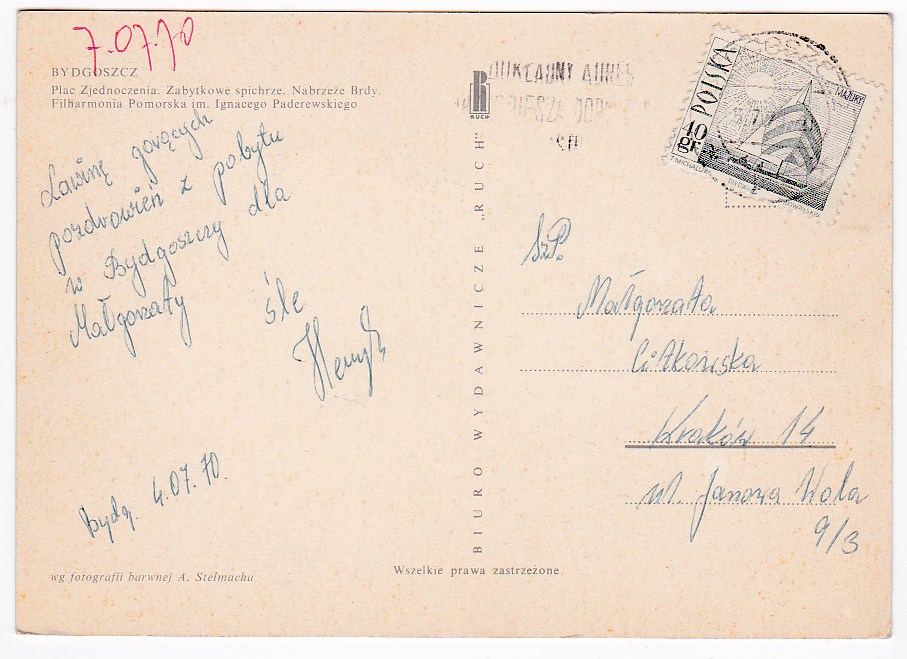 7.07.70
BYDGOSZCZ
Plac Zjednoczenia. Zabytkowe spichrze. Nabrzeże Brdy.
Filharmonia Pomorska im. Ignacego Paderewskiego
Lawinę gorących
pozdrowień z pobytu
w Bydgoszczy dla
Małgorzaty śle
Henryk
Bydg. 4.07.70.
wg fotografii barwnej A. Stelmacha
RUCH
BIURO WYDAWNICZE „RUCH"
Wszelkie prawa zastrzeżone
DOKŁADNY ADRES
POLSKA
10 gr
MAZURY
SzP.
Małgorzata
Kraków 14
ul. Janowa Wola
9/3